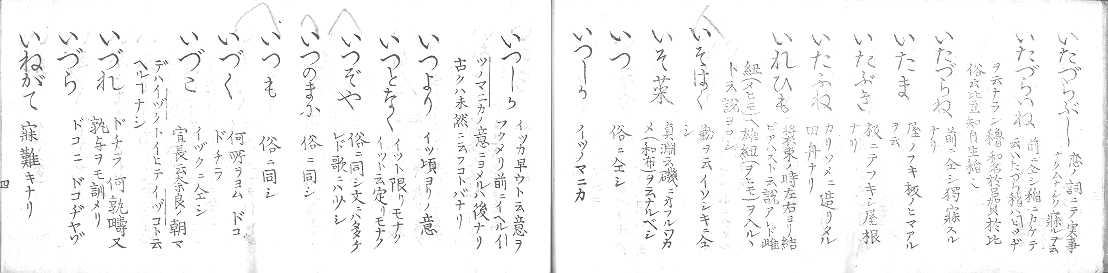 いたづらぶし 恋ノ詞ニテ実事
ナクムナシク寐ルヲ云
いたづらいね 前ニ仝シ稲ニカケテ
ヲ云ナラン
いたづらね 前ニ仝シ獨寐スル
ナリ
いたま 屋ノフキ板ノヒマアル
ヲ云
いたぶき 板ニテフキシ屋根
ナリ
いたふね カリソメニ造リタル
田舟ナリ
いれひも 装束ノ時左右ヨリ結
ビアハストト云説アレド雌
紐(メヒモ)ヘ雄紐(ヲヒモ)ヲ入ルヽ
ト云説ヨロシ
いそはく 勤ヲ云イソシキニ仝
シ
いそ菜 真淵云磯ニオフルワカ
メ(和布)ラヲナルベシ
いつ 俗ニ仝シ
いつしか イツノマニカ
いつしか イツカ早ウト云意ヲ
フクメリ前ニイヘルイ
ツノマニカノ意ニヨメルハ後ナリ
古クハ未然ニ云フコトバナリ
いつより イツ頃ヨリノ意
いつとなく イツト限リモナク
イツト云定リモナク
いつぞや 俗ニ同シ文ニハタヾアレド
歌ニハツシ
いつのまに 俗ニ同シ
いつも 俗ニ同シ
いづく 何所ヲヨム ドコ
ドチラ
いづこ イヅクニ仝シ
宣長云奈良ノ朝マ
デハイヅクトイヒテイヅコト云
ヘルコナシ
いづれ ドチラ 何孰疇又
孰与ヲモ訓メリ
いづら ドコニ ドコヂヤゾ
いねがて 寐難キナリ
四